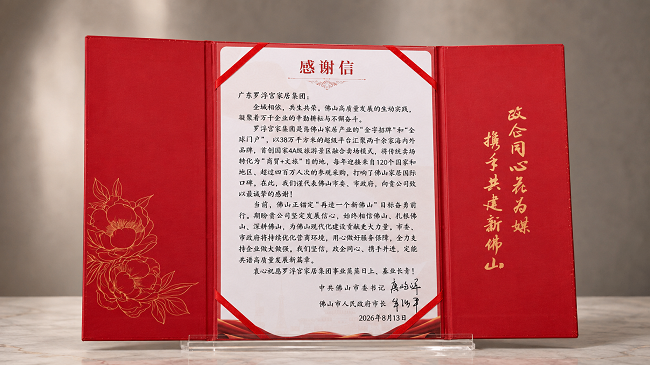 感谢信
广东罗浮宫家居集团：
全城相依，共生共荣。佛山高质量发展的生动实践，
凝聚着万千企业的辛勤耕耘与不懈奋斗。
罗浮宫家居集团是扬佛山家居产业的“金字招牌”和“全
球门户”，以38万平方米的超级平台汇聚两千余家海内外
品牌，首创国家4A级旅游景区融合卖场模式，将传统卖场
转化为“商贸+文旅”目的地，每年迎接来自120个国家和
地区，超过四百万人次的参观采购，打响了佛山家居国际
口碑。在此，我们谨代表佛山市委、市政府，向贵公司致
以最诚挚的感谢！
当前，佛山正锚定“再造一个新佛山”目标奋勇前
行。期盼贵公司坚定发展信心，始终相信佛山、扎根佛
山、深耕佛山，为佛山现代化建设贡献更大力量。市委、
市政府将持续优化营商环境，用心做好服务保障，全力支
持企业做大做强。我们坚信，政企同心、携手并进，定能
共谱高质量发展新篇章。
衷心祝愿罗浮宫家居集团事业蒸蒸日上、基业长青！
中共佛山市委书记
佛山市人民政府市长
2026年8月13日
政企同心花为媒
携手共建新佛山